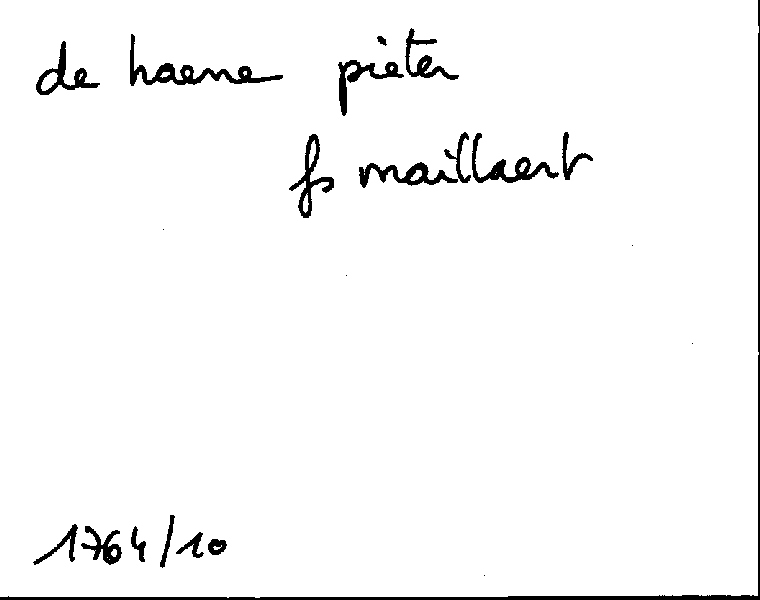 de haene pieter
fs maillaert
1764/10